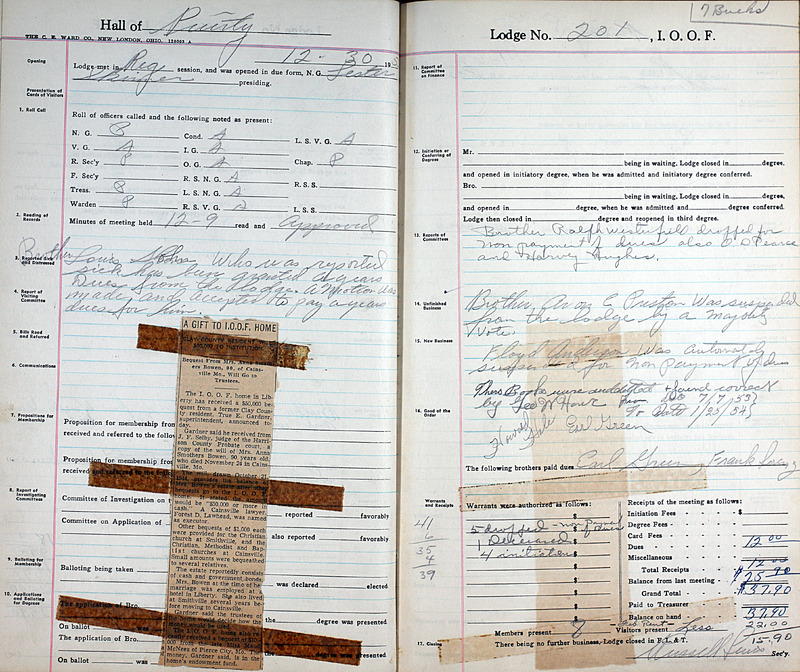 Hall of Purity
THE C. E. WARD CO., NEW LONDON, OHIO,
12-30 19
Opening
Lodge met in Reg session, and was opened in due form, N. G. Lester
presiding.
Presentation of Cards of Visitors
1. Roll Call
Roll of officers called and the following noted as present:
N. G. 8 Cond. A L. S. V. G. A
V. G. A I. G. A
R. Sec'y 8 O. G. A Chap. 8
F. Sec'y R. S. N. G. A R. S. S.
Treas. 8 L. S. N. G. A
Warden 8 R. S. V. G. A L. S. S.
2. Reading of Records
Minutes of meeting held 12-9 read and Approved
3. Reported Sick and Distressed
Brother Louis Who was reported
sick has been granted a years
Dues from the lodge. A Motion was
4. Report of Visiting Committee
made and accepted to pay a years
dues for him.
5. Bills Read and Referred
A GIFT TO I.O.O.F. HOME
CLAY COUNTY RESIDENT
$50,000 TO INSTITUTION
Bequest From Mrs. Anna
Bowen, 90, of Cains-
ville Mo., Will Go to
Trustees.
6. Communications
The I. O. O. F. home in Lib-
erty has received a $50,000 be-
quest from a former Clay Coun-
ty resident, True E. Gardner,
superintendent, announced to-
day.
7. Propositions for Membership
Proposition for membership from
received and referred to the follo
Gardner said he received from
J. F. Selby, judge of the Harri-
son County Probate court, a
copy of the will of Mrs. Anna
Smothers Bowen, 90 years old,
who died November 24 in Cains-
ville, Mo.
Proposition for membership from
received and referred to the follo
8. Report of Investigating Committee
Committee of Investigation on
reported favorably
would be "$50,000 or more in
cash." A Cainsville lawyer,
Forest D. Lawhead, was named
as executor.
Committee on Application of
also reported favorably
Other requests of $1,000 each
were provided for the Christian
church at Smithville, and the
Christian, Methodist and Bap-
tist churches at Cainsville.
Small amounts were bequeathed
to several relatives.
9. Balloting for Membership
Balloting being taken was declared elected
The estate reportedly consists
of cash and government bonds.
Mrs. Bowen at the time of her
marriage was employed at a
hotel in Liberty. She also lived
at Smithville several years be-
fore moving to Cainsville.
10. Applications and Balloting for Degrees
The application of Bro.
Gardner said the trustees of
would decide how the
On ballot was degree was presented
The application of Bro.
McNees of Pierce City, Mo. The
money, Gardner said, is in the
home's endowment fund.
On ballot was degree was presented
7 Bucks
Lodge No. 201, I. O. O. F.
11. Report of Committee on Finance
12. Initiation or Conferring of Degrees
Mr.
being in waiting. Lodge closed in degree,
and opened in initiatory degree, when he was admitted and initiatory degree conferred.
Bro.
being in waiting. Lodge closed in degree,
and opened in degree, when he was admitted and degree conferred.
Lodge then closed in degree and reopened in third degree.
13. Reports of Committees
Brother Ralph Westerfield dropped for
non payment of dues also O D Pearce
and Harvey Hughes.
14. Unfinished Business
Brother Avon E Preston Was suspended
from the lodge by a majority
Vote.
15. New Business
Floyd Anderson was Automaticly
suspended for Non payment of dues
These Books were audited & found correct
by Geo W Hour From 7/7/53
To Date 1/25/54
16. Good of the Order
Howard Hale Earl Green
The following brothers paid dues Earl Green, Frank
Warrants and Receipts
Warrants were authorized as follows:
Receipts of the meeting as follows:
Initiation Fees $
41 5 dropped - non pay of dues Degree Fees
6 1 Deceased Card Fees
35 4 initiation Dues 12 00
4 Miscellaneous
39 Total Receipts 12 00
Balance from last meeting $25.90
Grand Total $37.90
Paid to Treasurer
Balance on hand 37.90
Members present 8 Visitors present Less 22.00
17. Closing
There being no further business, Lodge closed in F. L. & T. 15.90
Sec'y.